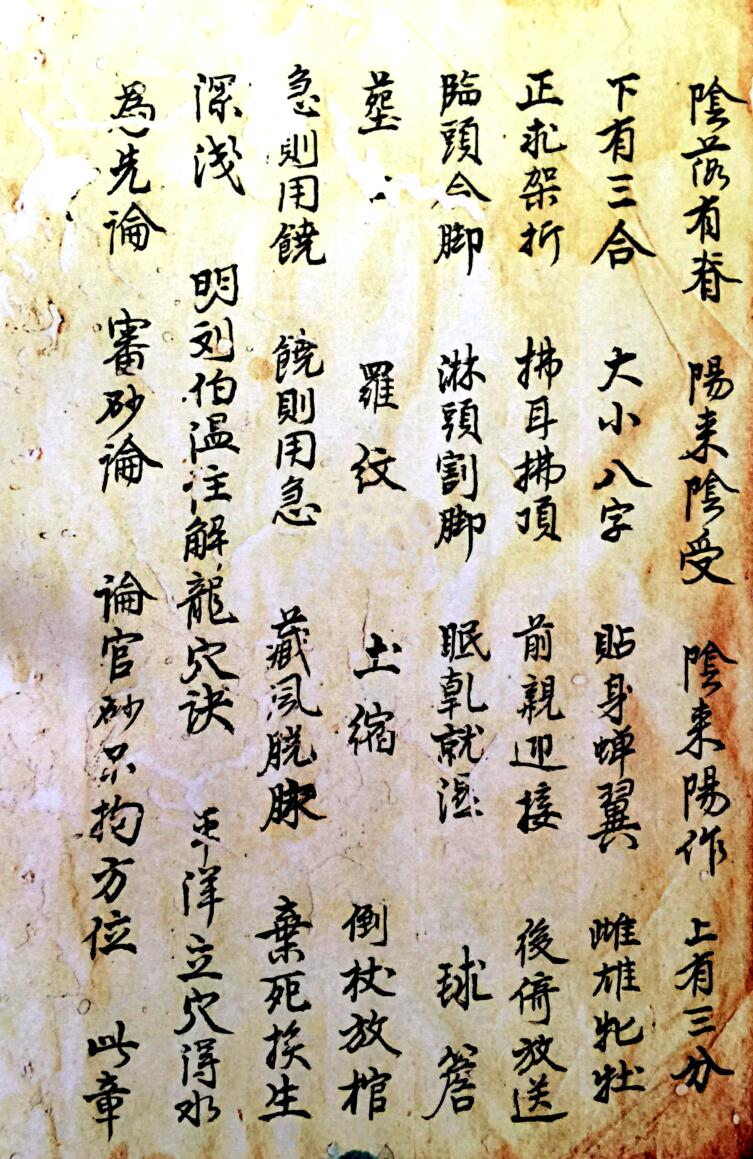 陰落有脊 陽来陰受 陰来陽作 上有三分
下有三合 大小八字 貼身蝉翼 雌雄牝牡
正求架折 拂耳拂頂 前親迎接 後倚放送
臨頭合脚 淋頭割脚 眠乹就湿 球簷
葬口 羅紋 土縮 倒杖放棺
急則用饒 饒則用急 藏風脱脉 棄死挨生
深浅 明刘伯温注解龍穴诀 平洋立穴淂水
為先論 審砂論 論官砂不拘方位 此章